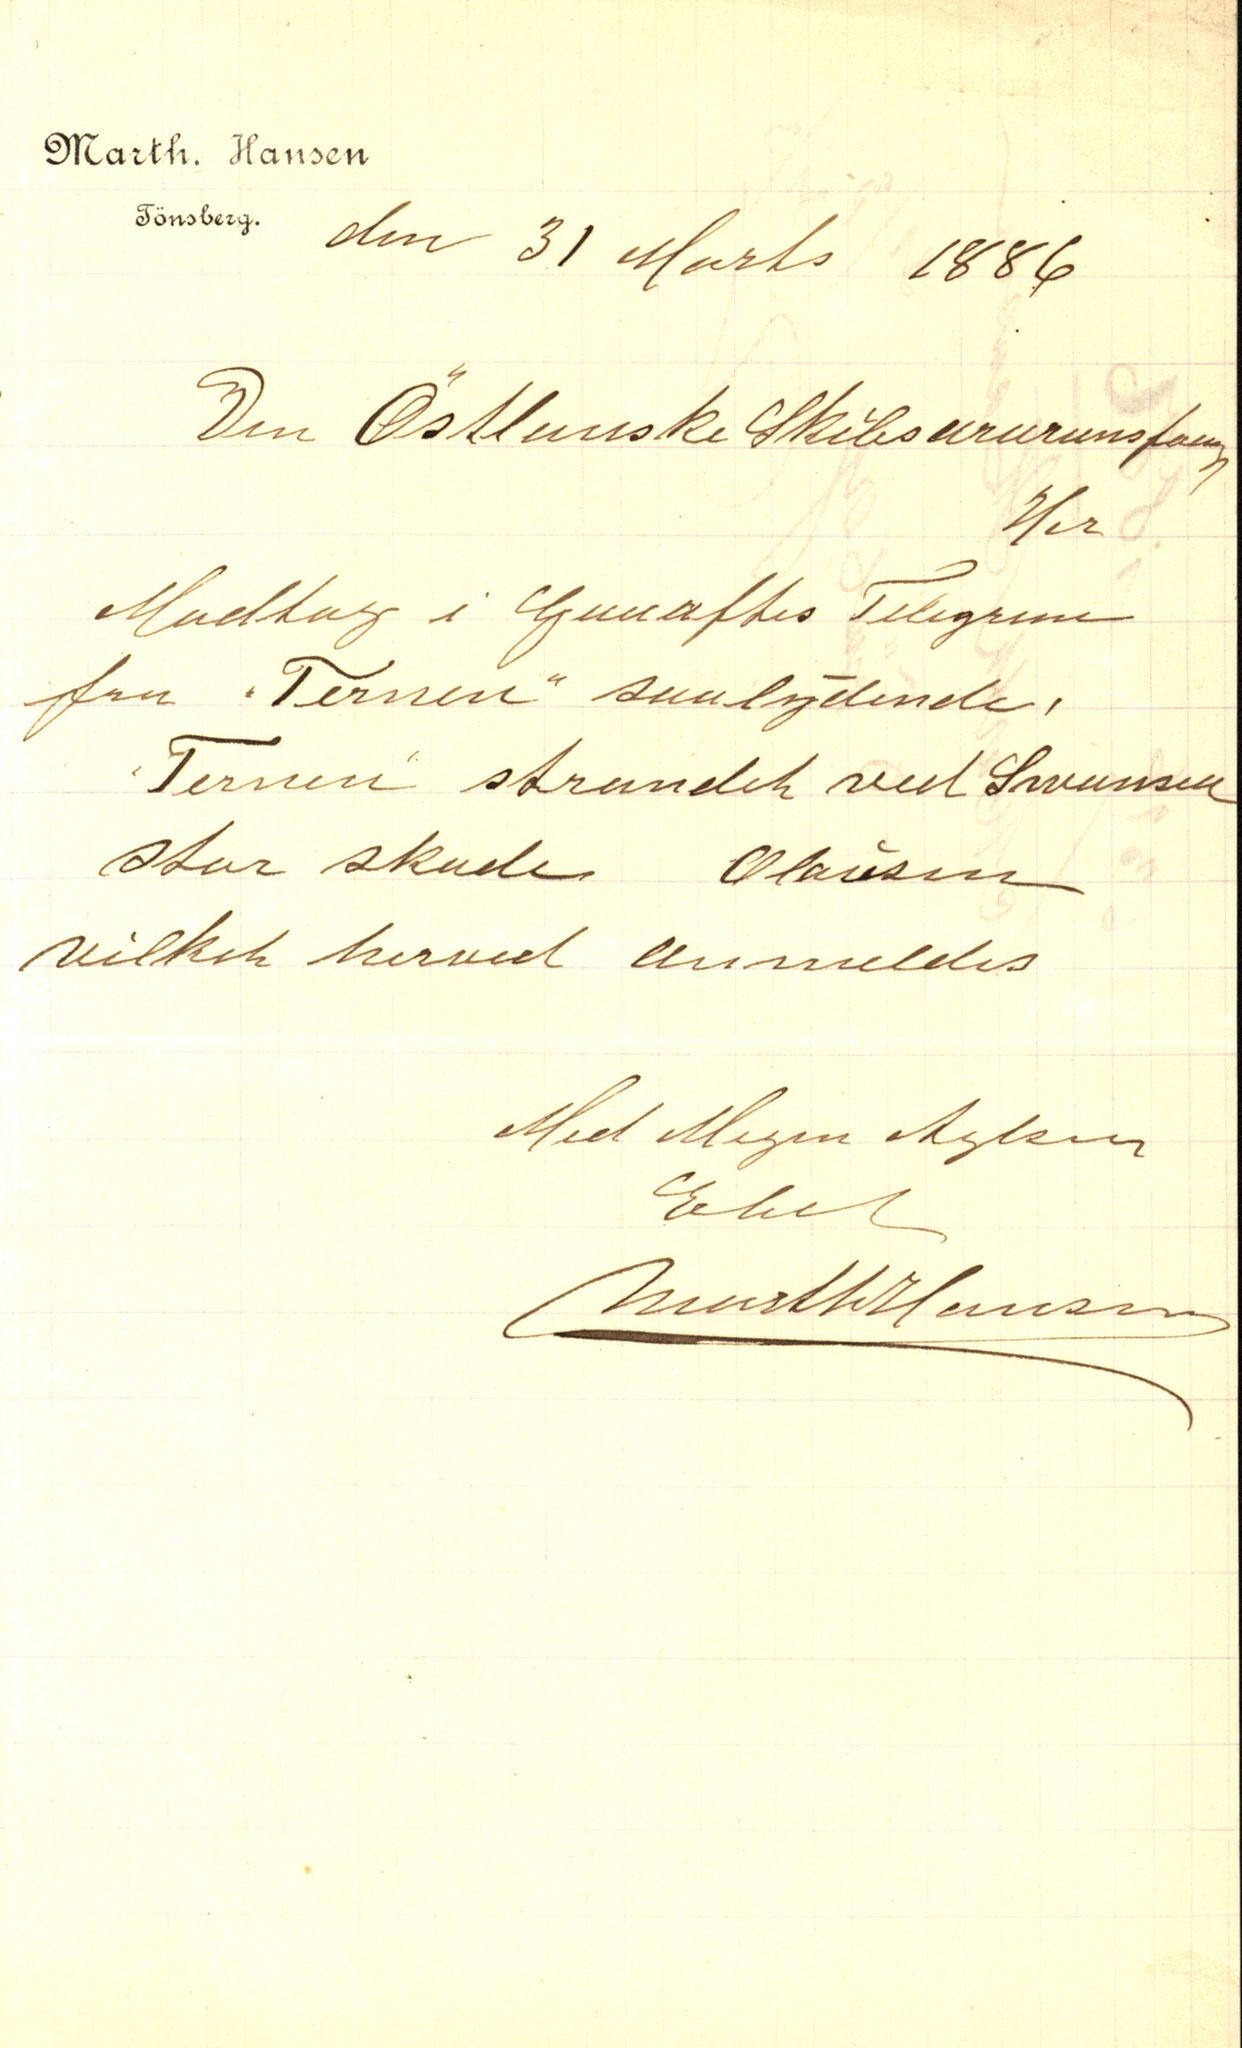 Marth. Hansen
Tönsberg.
den 31 Marts 1886
Den Östlanske Skibsasuransforng
Her
Modtog i Gaaraftes Telegram
fra "Ternen" saalydende,
"Ternen" strandet ved Swansea
stor skade Olausen
vilket herved anmeldes
Med Megen Agtelsen
Ebet
Marth Hansen